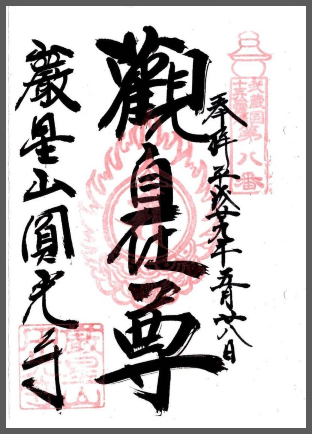 第八番
奉拝 平成廿九年五月廿八日
觀自在尊
巖星山圓光寺